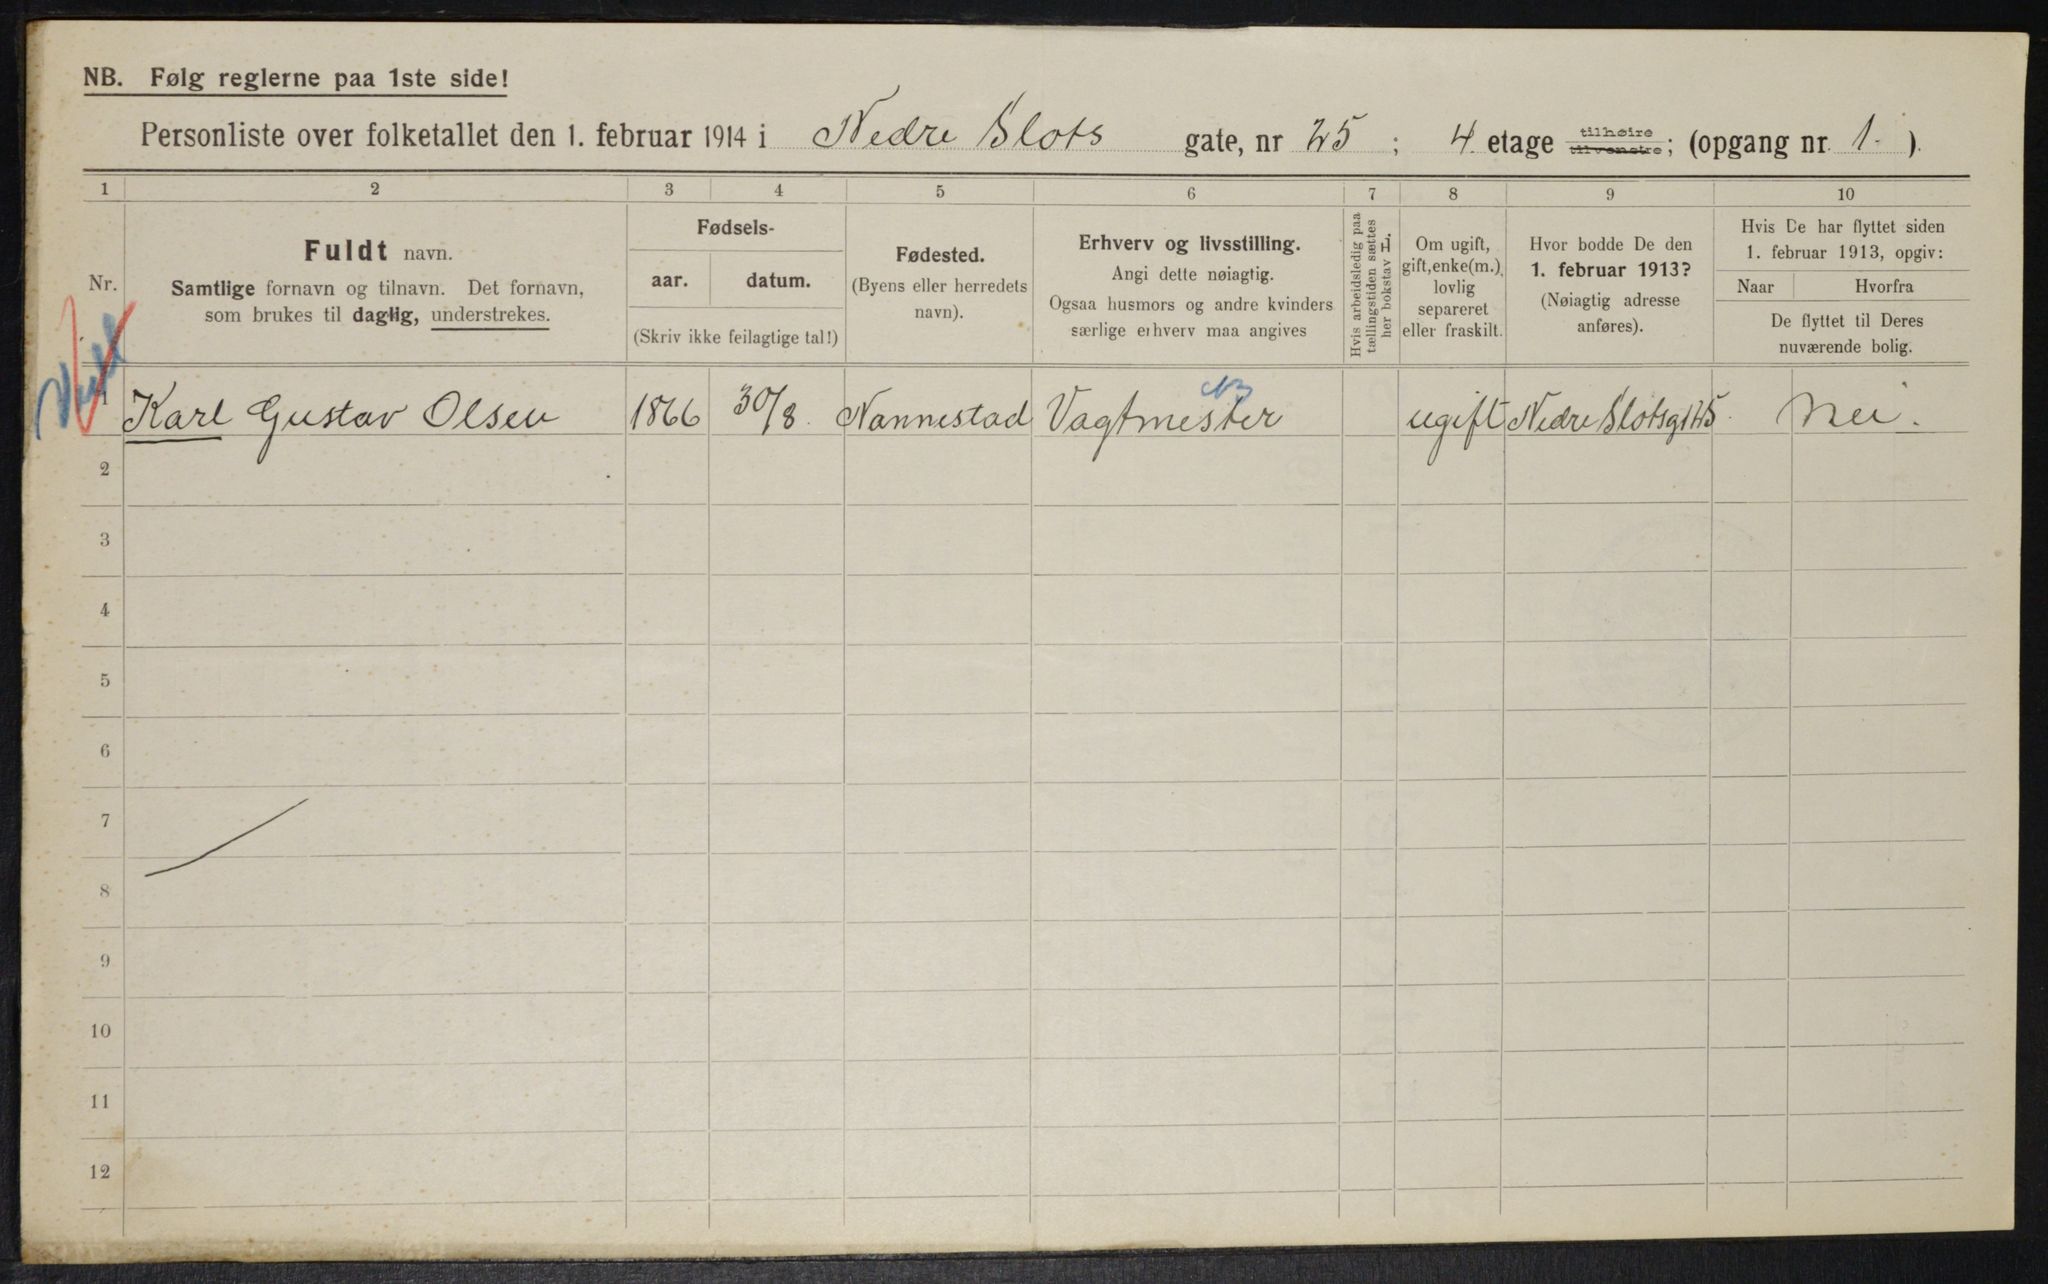 NB. Følg reglerne paa 1ste side!
Personliste over folketallet den 1. februar 1914 i Nedre Slots gate, nr 25 ; 4 etage tilhøire tilvenstre; (opgang nr 1. ).
1 2 3 4 5 6 7 8 9 10
Nr.
Fuldt navn.
Samtlige fornavn og tilnavn. Det fornavn,
som brukes til daglig, understrekes.
Fødsels-
aar. datum.
(Skriv ikke feilagtige tal!)
Fødested.
(Byens eller herredets
navn).
Erhverv og livsstilling.
Angi dette nøiagtig.
Ogsaa husmors og andre kvinders
særlige erhverv maa angives
Hvis arbeidsledig paa
tællingstiden sættes
her bokstav L.
Om ugift,
gift, enke(m.),
lovlig
separeret
eller fraskilt.
Hvor bodde De den
1. februar 1913?
(Nøiagtig adresse
anføres).
Hvis De har flyttet siden
1. februar 1913, opgiv:
Naar Hvorfra
De flyttet til Deres
nuværende bolig.
1 Karl Gustav Olsen 1866 30/8. Nannestad Vagtmester ugift Nedre Slotsgt Nei.
2
3
4
5
6
7
8
9
10
11
12